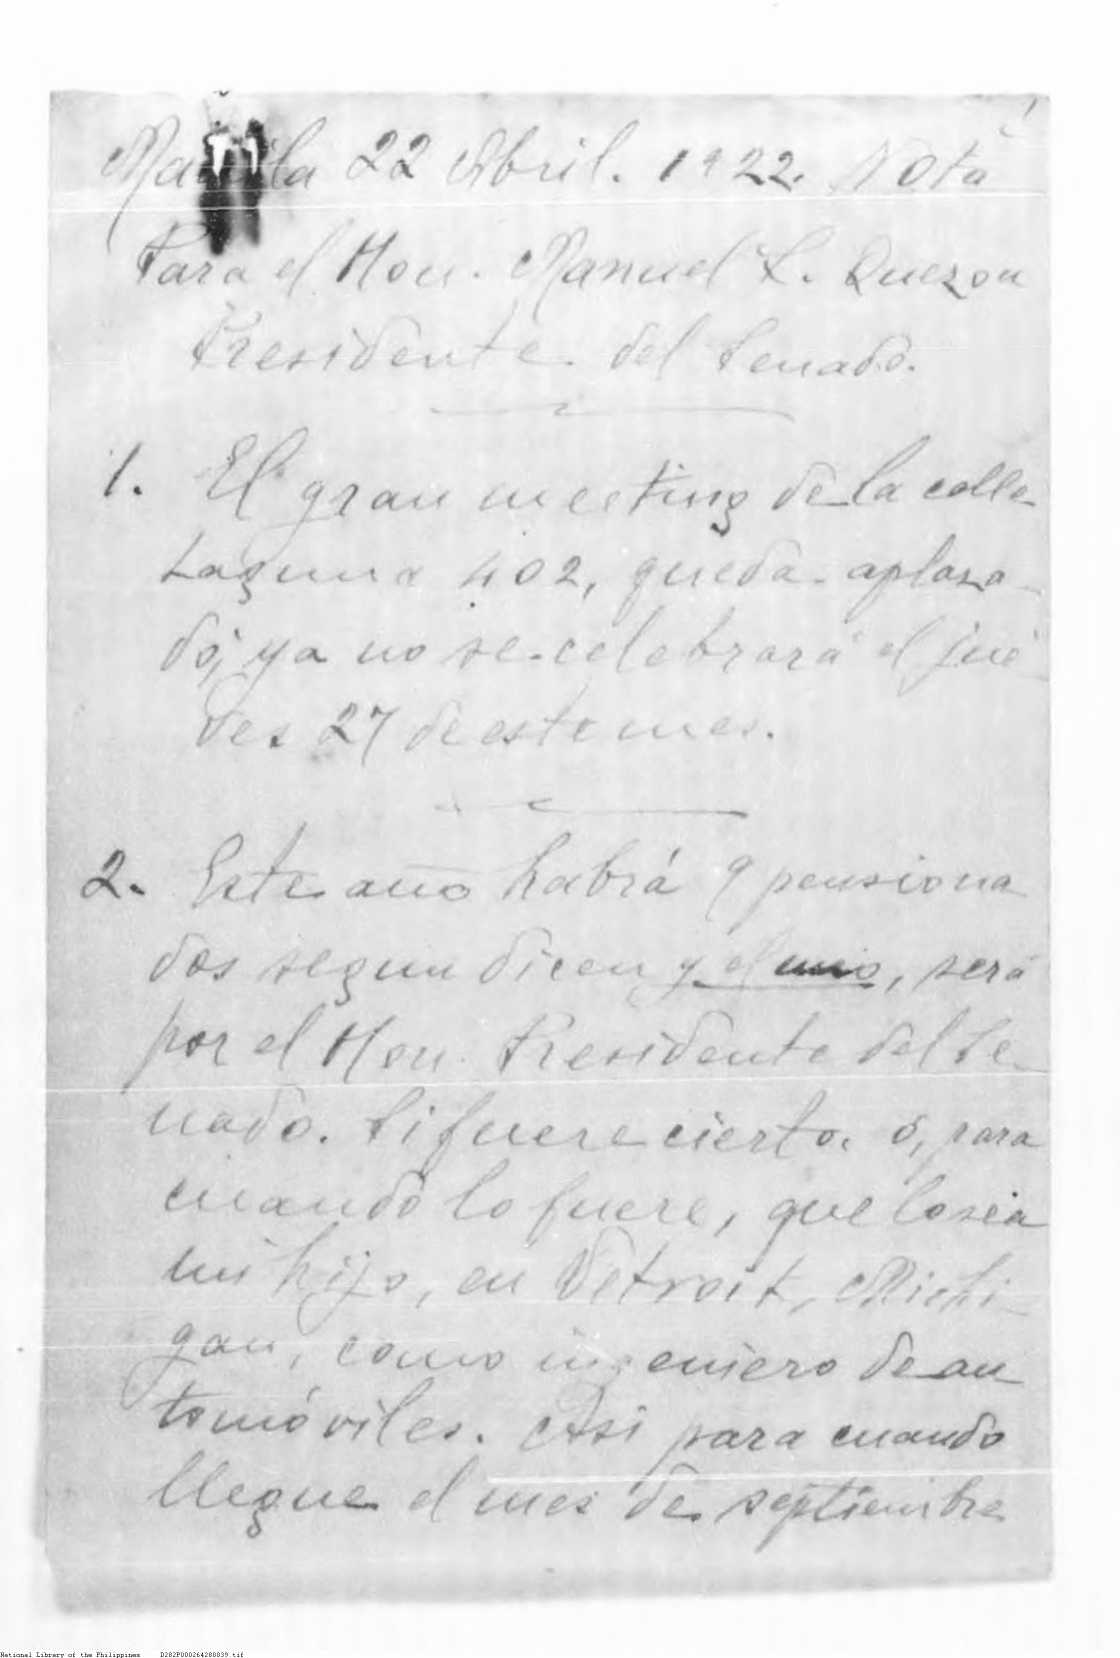 Manila 22 Abril. 1922. Nota
Para el Hon. Manuel L. Quezon
Presidente del Senado.
1. El gran meeting de la calle
Laguna 402, queda aplaza
do, ya no se celebrará el jue
ves 27 de este mes.
2. Este año habrá 9 pensiona
dos segun dicen y el uno, será
por el Hon. Presidente del Se
nado. Si fuere cierto. ó, para
cuando lo fuere, que lo sea
mi hijo, en Detroit, Michi
gan, como ingeniero de au
tomóviles. Asi para cuando
llegue el mes de septiembre
National Library of the Philippines D282P000264288839.tif